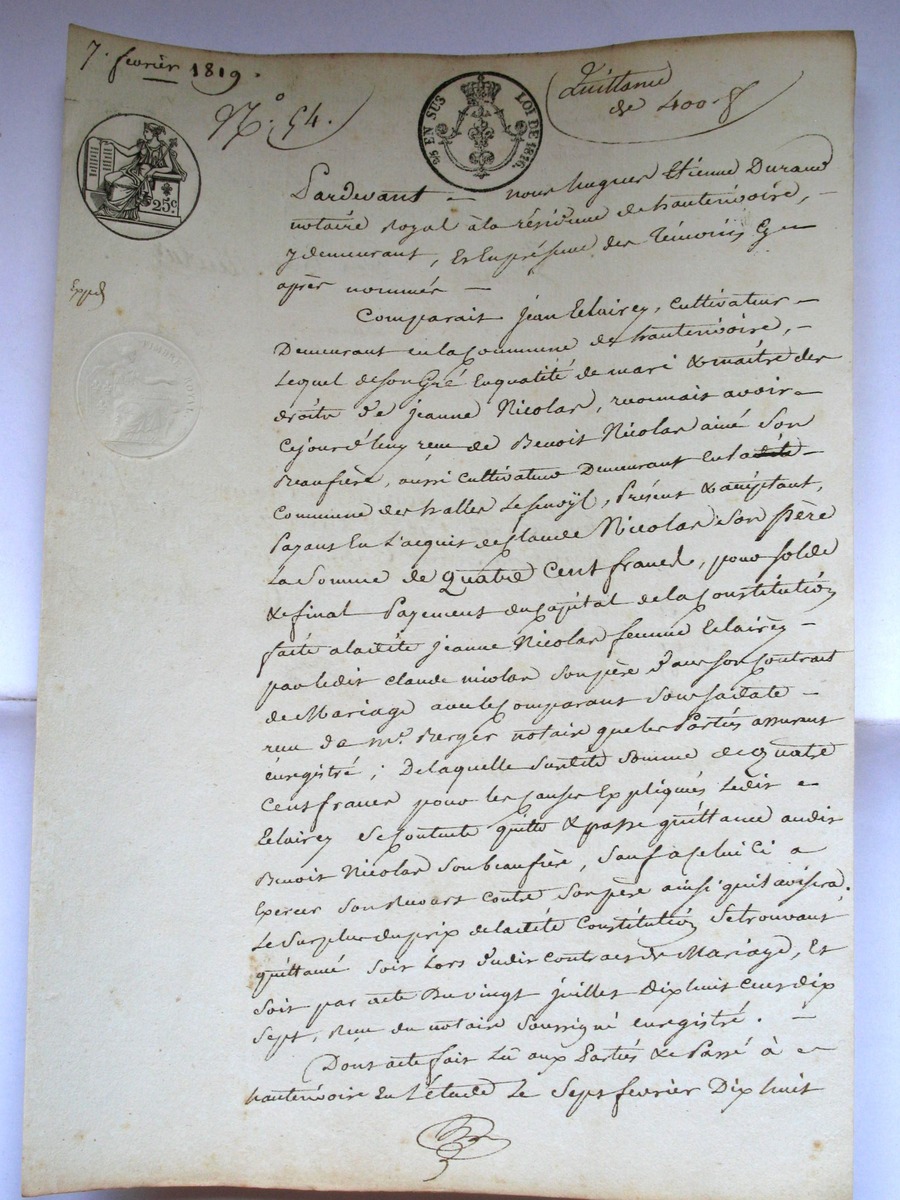 7. fevrier 1819.
N.° 54.
Quittance
de 400 f
25 EN SUS LOI DE 1816.
25 c.
Expié
TIMBRE ROYAL
Pardevant — nous hugues Etienne Durand
notaire Royal à la résidence de hauterivoire, —
y demeurant, Et En présence des témoins Cy —
après nommés —
Comparait jean Eclairey, Cultivateur —
Demeurant en la Commune de hauterivoire, —
Lequel de son Gré En qualité de mari & maitre des
droits de jeanne Nicolas, reconnait avoir —
Cejourd'huy reçu de Benoit Nicolas ainé son
Beaufrère, aussi Cultivateur Demeurant en la dite —
Commune des halles Lefenoÿl, Présent & acceptant,
Payant En l'acquit de Claude Nicolas son père
La Somme de quatre Cent francs, pour solde
& final Payement du Capital de la Constitution
faite à la dite jeanne Nicolas femme Eclairey —
par ledit claude nicolas son père dans son Contrat
de Mariage avec le Comparant sous sa date —
reçu de Me. Berger notaire que les Parties assurent
énregistré ; De laquelle susdite somme de quatre
Cent francs pour les Causes Expliqués Ledit —
Eclairey se Contente quitte & passe quittance audit
Benoit Nicolas son beaufrère, sauf a celui Ci a
Exercer son recours contre son père ainsi qu'il avisera.
Le Surplus du prix de la dite Constitution se trouvant
quittancé soit lors dudit Contract de Mariage, Et
soit par acte Du vingt juillet dix huit cent dix
sept, Reçu du notaire soussigné enregistré. —
Dont acte fait Lû aux Parties & Passé à —
hauterivoire En l'étude Le Sept fevrier Dix huit